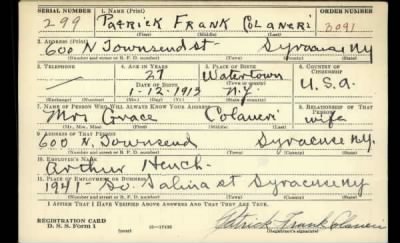 SERIAL NUMBER 1. NAME (Print) ORDER NUMBER
299 PATRICK FRANK COLANERI 3091
(First) (Middle) (Last)
2. ADDRESS (Print)
600 N Townsend st Syracuse NY
(Number and street or R. F. D. number) (Town) (County) (State)
3. TELEPHONE 4. AGE IN YEARS 5. PLACE OF BIRTH 6. COUNTRY OF CITIZENSHIP
27 Watertown
DATE OF BIRTH (Town or county)
1-12-1913 N.Y. U.S.A.
(Exchange) (No.) (Mo.) (Day) (Yr.) (State or country)
7. NAME OF PERSON WHO WILL ALWAYS KNOW YOUR ADDRESS 8. RELATIONSHIP OF THAT PERSON
Mrs Grace Colaneri wife
(Mr., Mrs., Miss) (First) (Middle) (Last)
9. ADDRESS OF THAT PERSON
600 N. Townsend Syracuse N.Y.
(Number and street or R. F. D. number) (Town) (County) (State)
10. EMPLOYER'S NAME
Arthur
11. PLACE OF EMPLOYMENT OR BUSINESS
1941- So. Salina st Syracuse NY
(Number and street or R. F. D. number) (Town) (County) (State)
I AFFIRM THAT I HAVE VERIFIED ABOVE ANSWERS AND THAT THEY ARE TRUE.
REGISTRATION CARD
D. S. S. Form 1 16-17105 Patrick Frank Colaneri
(Registrant's signature)